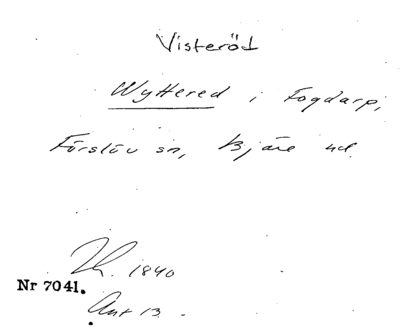 Visteröd
Wyttered i Fogdarp,
Förslöv sn, Bjäre hd.
Th. 1840
Nr 7041.
Ant 13.